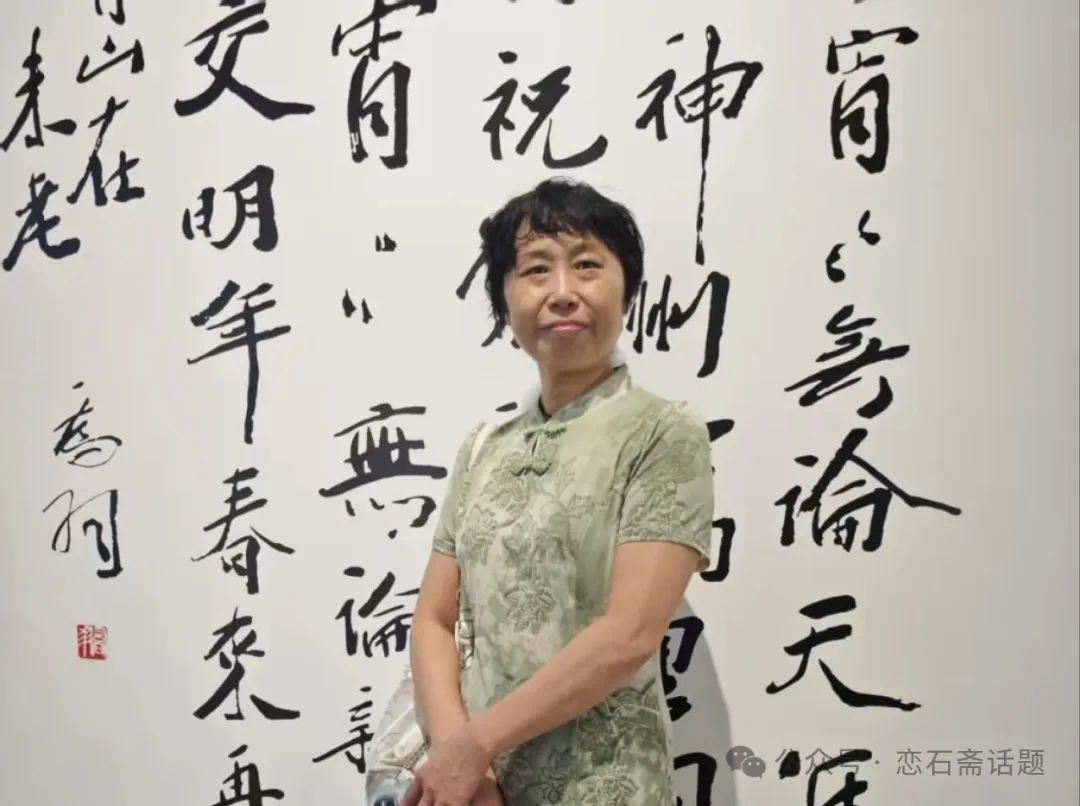 宵〻〻無論天
神州
祝
宵〃〃無論新
交明年春來再
山在
未老
喬羽
公众号 · 恋石斋话题